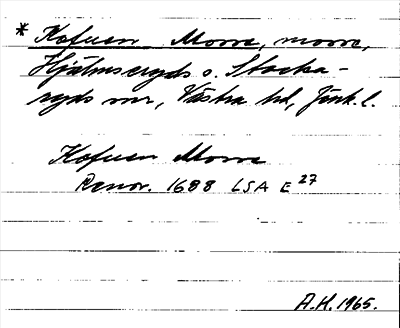 * Kofuen Morre, morre,
Hjälmseryds o. Stocka-
ryds snr, Västra hd, Jönk. l.
Kofuen Morre
Renov. 1688 LSA E 27
A.H. 1965.